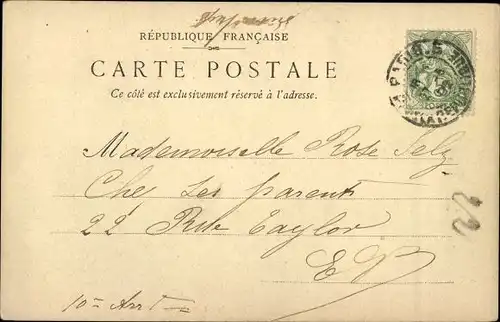 RÉPUBLIQUE FRANÇAISE
CARTE POSTALE
Ce côté est exclusivement réservé à l'adresse.
PARIS
Mademoiselle Rose Selz
Chez Ses parents
22 Rue Taylor
E V
10e Arrt
22